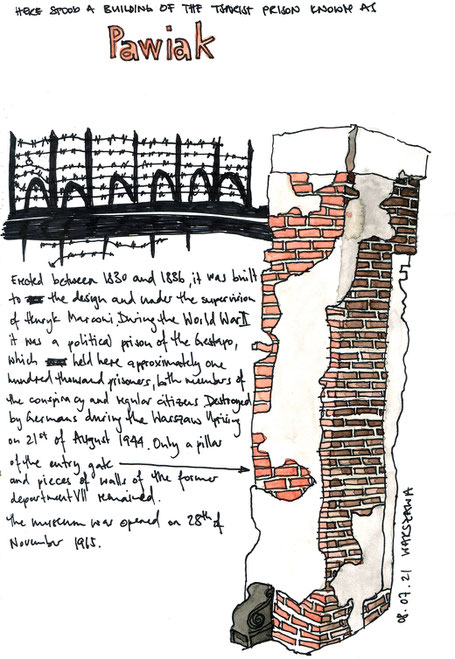 HERE STOOD A BUILDING OF THE TSARIST PRISON KNOWN AS
Pawiak
Erected between 1830 and 1836, it was built
to the design and under the supervision
of Henryk Marconi. During the World War II
it was a political prison of the Gestapo,
which held here approximately one
hundred thousand prisoners, both members of
the conspiracy and regular citizens. Destroyed
by Germans during the Warszaw Uprising
on 21st of August 1944. Only a pillar
of the entry gate
and pieces of walls of the former
department VII remained.
The museum was opened on 28th of
November 1965.
08.07.21 WARSZAWA